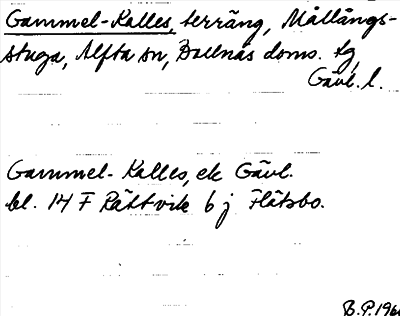 Gammel-Kalles, terräng, Mållångs-
stuga, Alfta sn, Bollnäs doms. tg,
Gävl. l.
Gammel-Kalles, ek Gävl.
bl. 14 F Rättvik 6 j Flätsbo.
B.P. 196